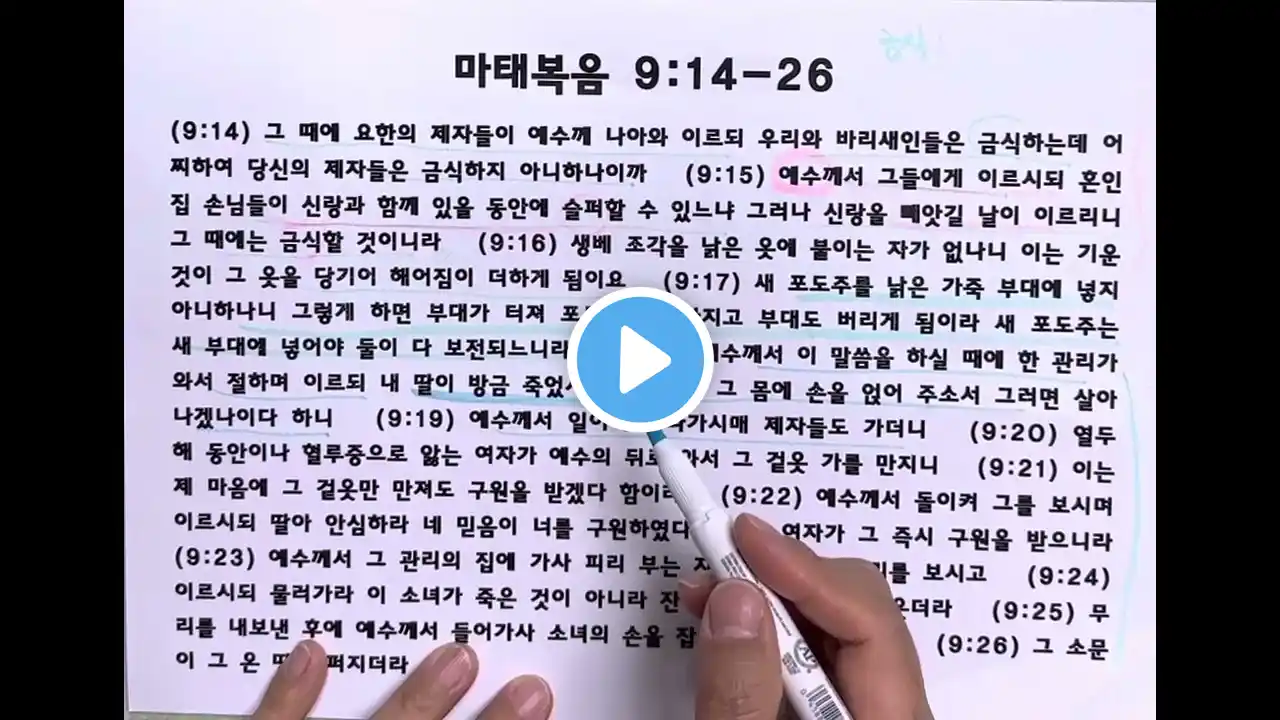 금식
마태복음 9:14-26
(9:14) 그 때에 요한의 제자들이 예수께 나아와 이르되 우리와 바리새인들은 금식하는데 어
찌하여 당신의 제자들은 금식하지 아니하나이까 (9:15) 예수께서 그들에게 이르시되 혼인
집 손님들이 신랑과 함께 있을 동안에 슬퍼할 수 있느냐 그러나 신랑을 빼앗길 날이 이르리니
그 때에는 금식할 것이니라 (9:16) 생베 조각을 낡은 옷에 붙이는 자가 없나니 이는 기운
것이 그 옷을 당기어 해어짐이 더하게 됨이요 (9:17) 새 포도주를 낡은 가죽 부대에 넣지
아니하나니 그렇게 하면 부대가 터져 부대도 버리게 됨이라 새 포도주는
새 부대에 넣어야 둘이 다 보전되느니라 이 말씀을 하실 때에 한 관리가
와서 절하며 이르되 내 딸이 방금 그 몸에 손을 얹어 주소서 그러면 살아
나겠나이다 하니 (9:19) 예수께서 제자들도 가더니 (9:20) 열두
해 동안이나 혈루증으로 앓는 여자가 예수의 그 겉옷 가를 만지니 (9:21) 이는
제 마음에 그 겉옷만 만져도 구원을 받겠다 (9:22) 예수께서 돌이켜 그를 보시며
이르시되 딸아 안심하라 네 믿음이 너를 여자가 그 즉시 구원을 받으니라
(9:23) 예수께서 그 관리의 집에 가사 피리 부는 보시고 (9:24)
이르시되 물러가라 이 소녀가 죽은 것이 아니라 (9:25) 무
리를 내보낸 후에 예수께서 들어가사 소녀의 손을 (9:26) 그 소문
이 그 온